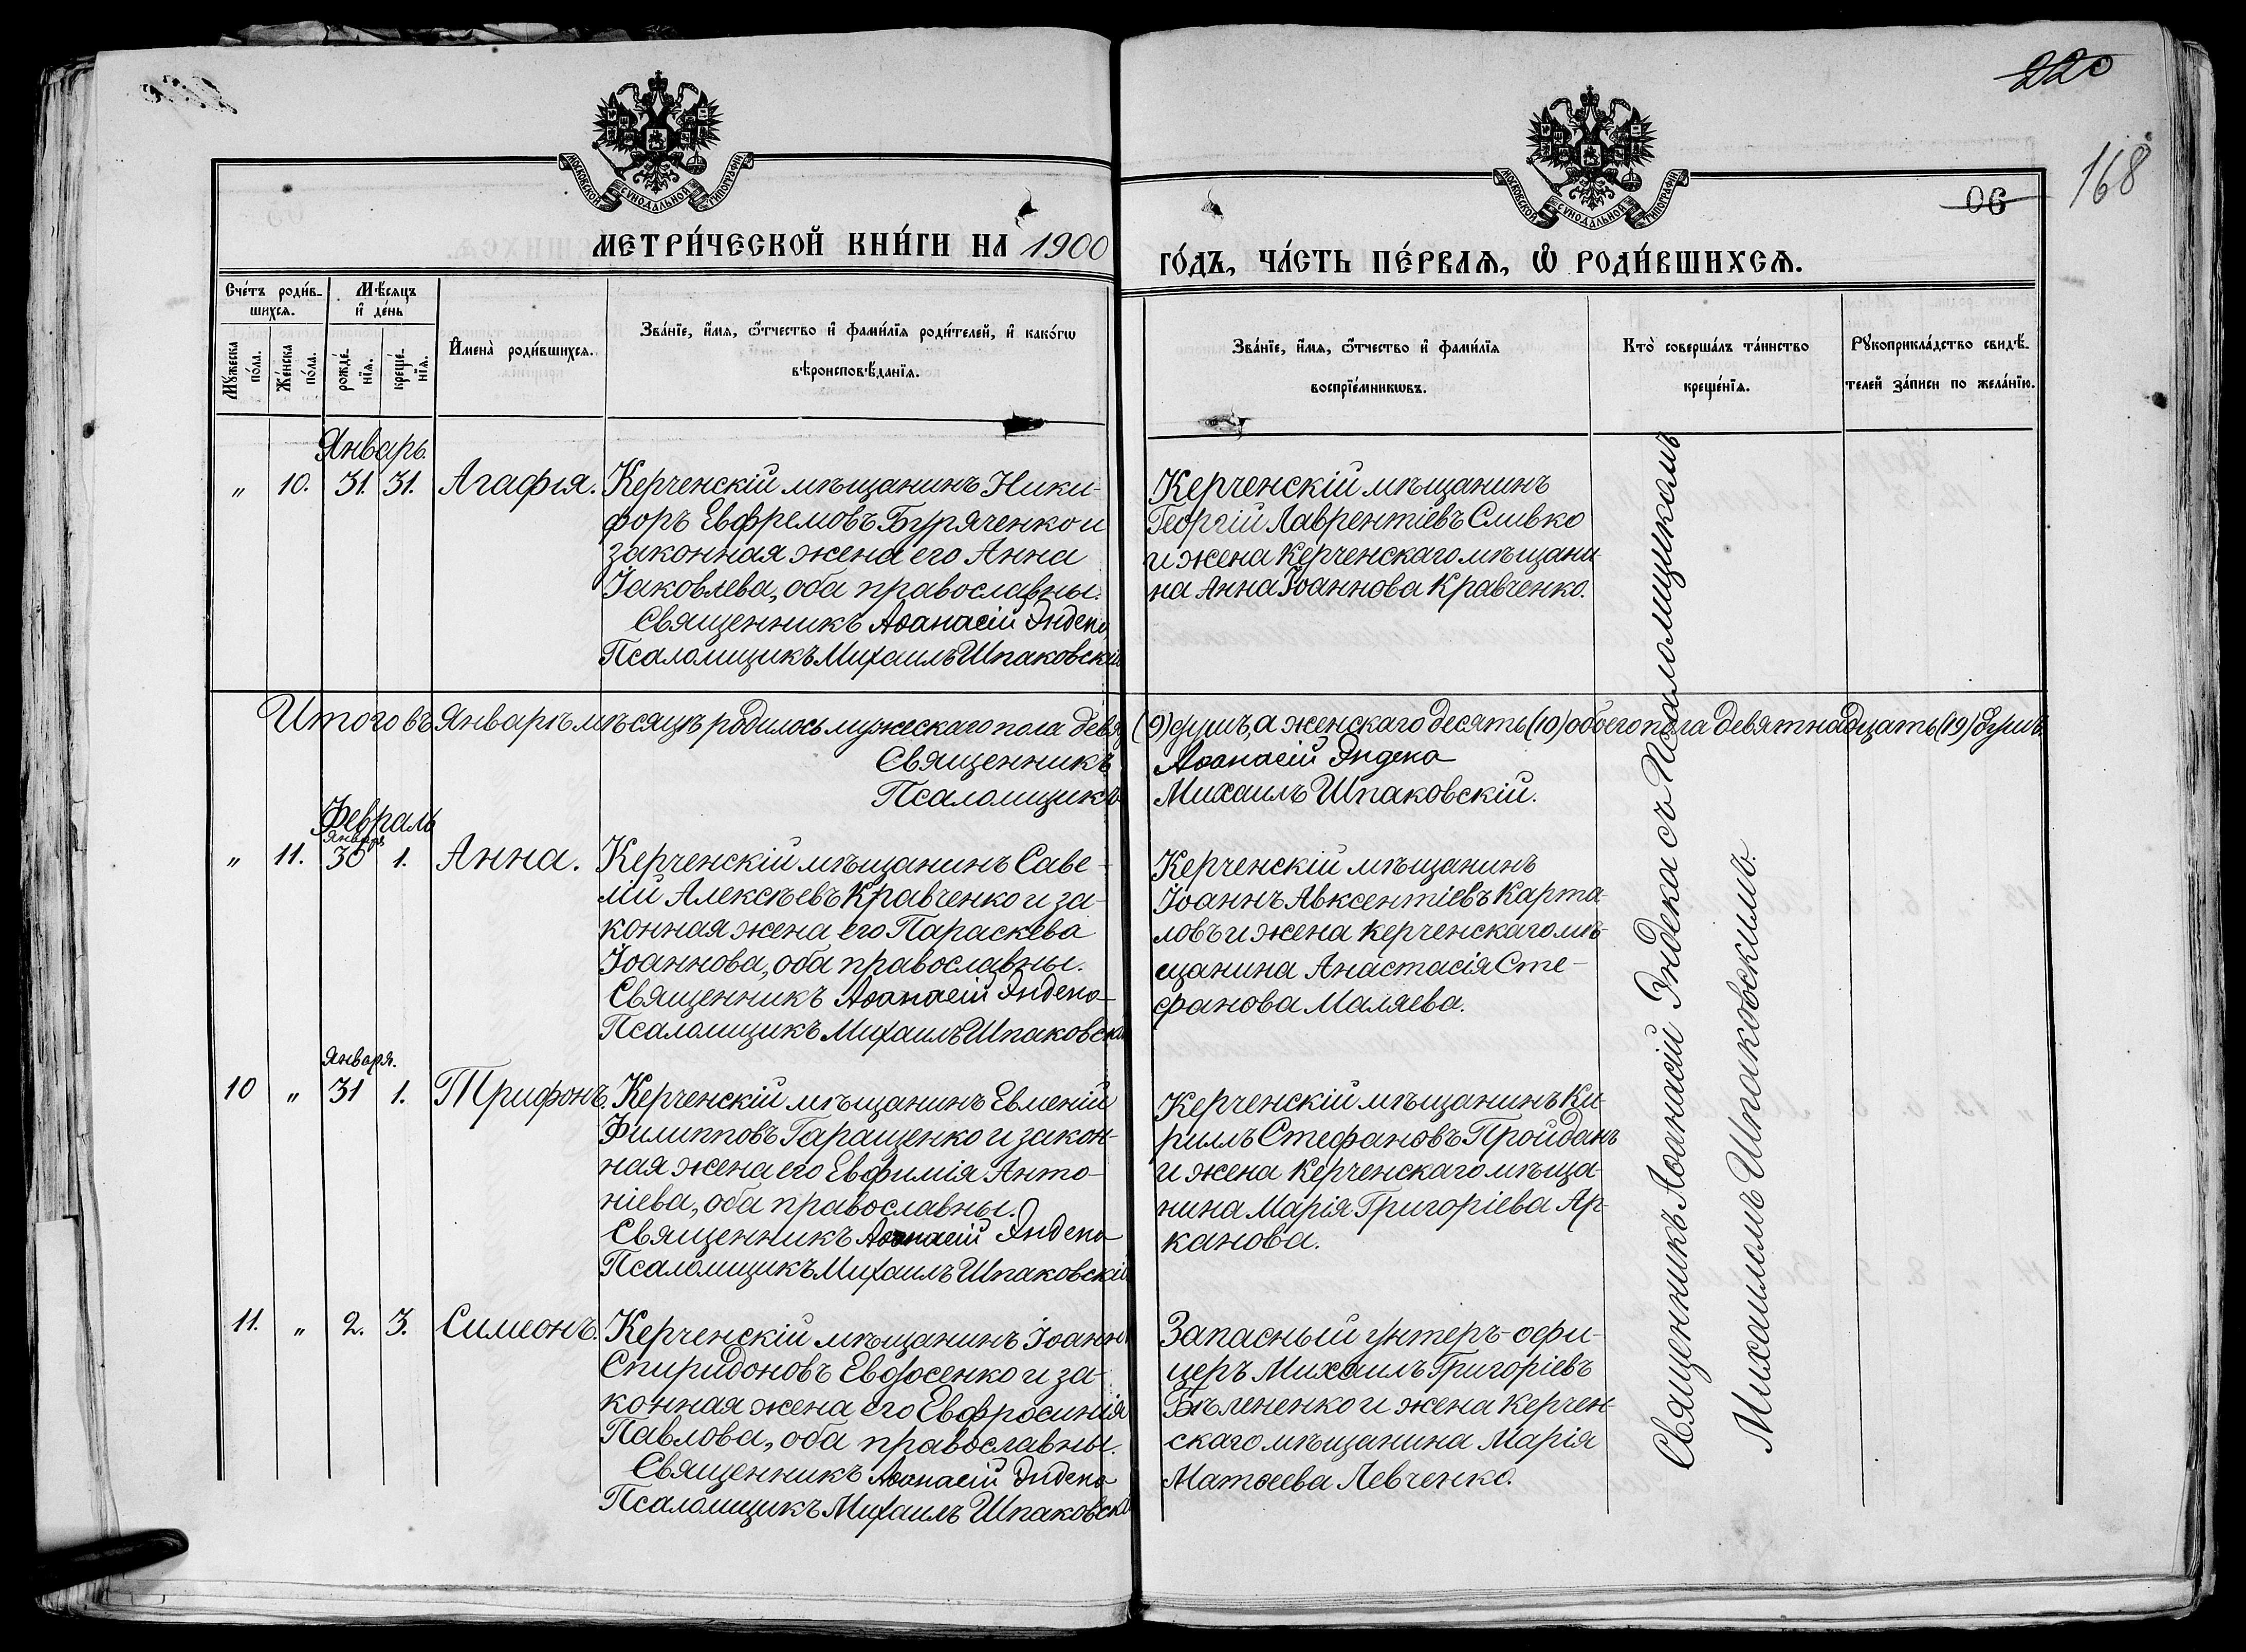 220
168
06
МОСКОВСКОЙ СѴНОДАЛЬНОЙ ТИПОГРАФІИ
МОСКОВСКОЙ СѴНОДАЛЬНОЙ ТИПОГРАФІИ
МЕТРИ́ЧЕСКОЙ КНИ́ГИ НА 1900
ГО́ДЪ, ЧА́СТЬ ПЕ́РВАѦ, Ѡ҆ РОДИ́ВШИХСѦ.
Сче́тъ роди́в-
шихсѧ.
Мѣ́сѧцъ
и҆ де́нь
Мꙋ́жеска
по́ла.
Же́нска
по́ла.
рожде́-
нїѧ.
креще́-
нїѧ.
И҆мена̀ роди́вшихсѧ.
Зва́нїе, и҆́мѧ, ѻ҆́тчество и҆ фами́лїѧ роди́телей, и҆ како́гѡ
вѣроисповѣ́данїѧ.
Зва́нїе, и҆́мѧ, ѻ҆́тчество и҆ фами́лїѧ
воспрїе́мникѡвъ.
Кто̀ соверша́лъ та́инство
креще́нїѧ.
Рꙋкоприкла́дство свидѣ́-
телей за́писи по жела́нїю.
Январь.
" 10. 31. 31. Агафія.
Керченскій мѣщанинъ Ники-
форъ Евфремовъ Буряченко и
законная жена его Анна
Іаковлева, оба православны.
Священникъ Аѳанасій Индека
Псаломщикъ Михаилъ Шпаковскій
Керченскій мѣщанинъ
Георгій Лаврентіевъ Сливко
и жена Керченскаго мѣщани-
на Анна Іоаннова Кравченко.
Итого въ Январѣ мѣсяцѣ родилось мужескаго пола девя (9) душъ, а женскаго десять (10) обоего пола девятнадцать (19) душъ.
Священникъ Аѳанасій Индека
Псаломщикъ Михаилъ Шпаковскій.
Февраль
Января
" 11. 30 1. Анна.
Керченскій мѣщанинъ Саве-
лій Алексѣевъ Кравченко и за-
конная жена его Параскева
Іоаннова, оба православны.
Священникъ Аѳанасій Индека
Псаломщикъ Михаилъ Шпаковскій
Керченскій мѣщанинъ
Іоаннъ Авксентіевъ Карта-
ловъ и жена керченскаго мѣ-
щанина Анастасія Сте-
фанова Маляева.
Января.
10 " 31 1. Трифонъ.
Керченскій мѣщанинъ Евменій
Филипповъ Таращенко и закон-
ная жена его Евфимія Анто-
ніева, оба православны.
Священникъ Аѳанасій Индека
Псаломщикъ Михаилъ Шпаковскій
Керченскій мѣщанинъ Ки-
риллъ Стефановъ Пройданъ
и жена Керченскаго мѣща-
нина Марія Григоріева Ар-
канова.
11. " 2. 3. Симеонъ.
Керченскій мѣщанинъ Іоаннъ
Спиридоновъ Евфосенко и за-
конная жена его Евфросинія
Павлова, оба православны.
Священникъ Аѳанасій Индека
Псаломщикъ Михаилъ Шпаковскій
Запасный унтеръ-офи-
церъ Михаилъ Григоріевъ
Бѣлененко и жена керчен-
скаго мѣщанина Марія
Матѳеева Левченко.
Священникъ Аѳанасій Индека съ Псаломщикомъ
Михаиломъ Шпаковскимъ.